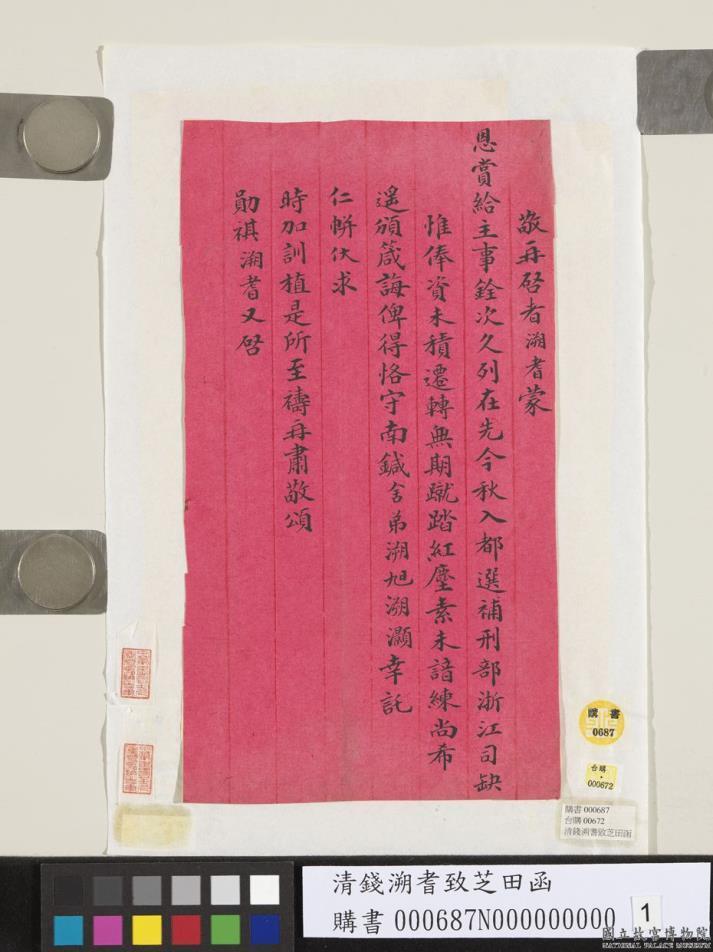 敬再啓者溯耆蒙
恩賞給主事銓次久列在先今秋入都選補刑部浙江司缺
惟俸資未積遷轉無期蹴踏紅塵素未諳練尚希
遥頒箴誨俾得恪守南鍼舍弟溯旭溯灝幸託
仁帡伏求
時加訓植是所至禱再肅敬頌
勛祺溯耆又啓
購書
0687
台購
000672
購書 000687
台購 00672
清錢溯耆致芝田函
清錢溯耆致芝田函
購書 000687N000000000
1
國立故宮博物院
NATIONAL PALACE MUSEUM